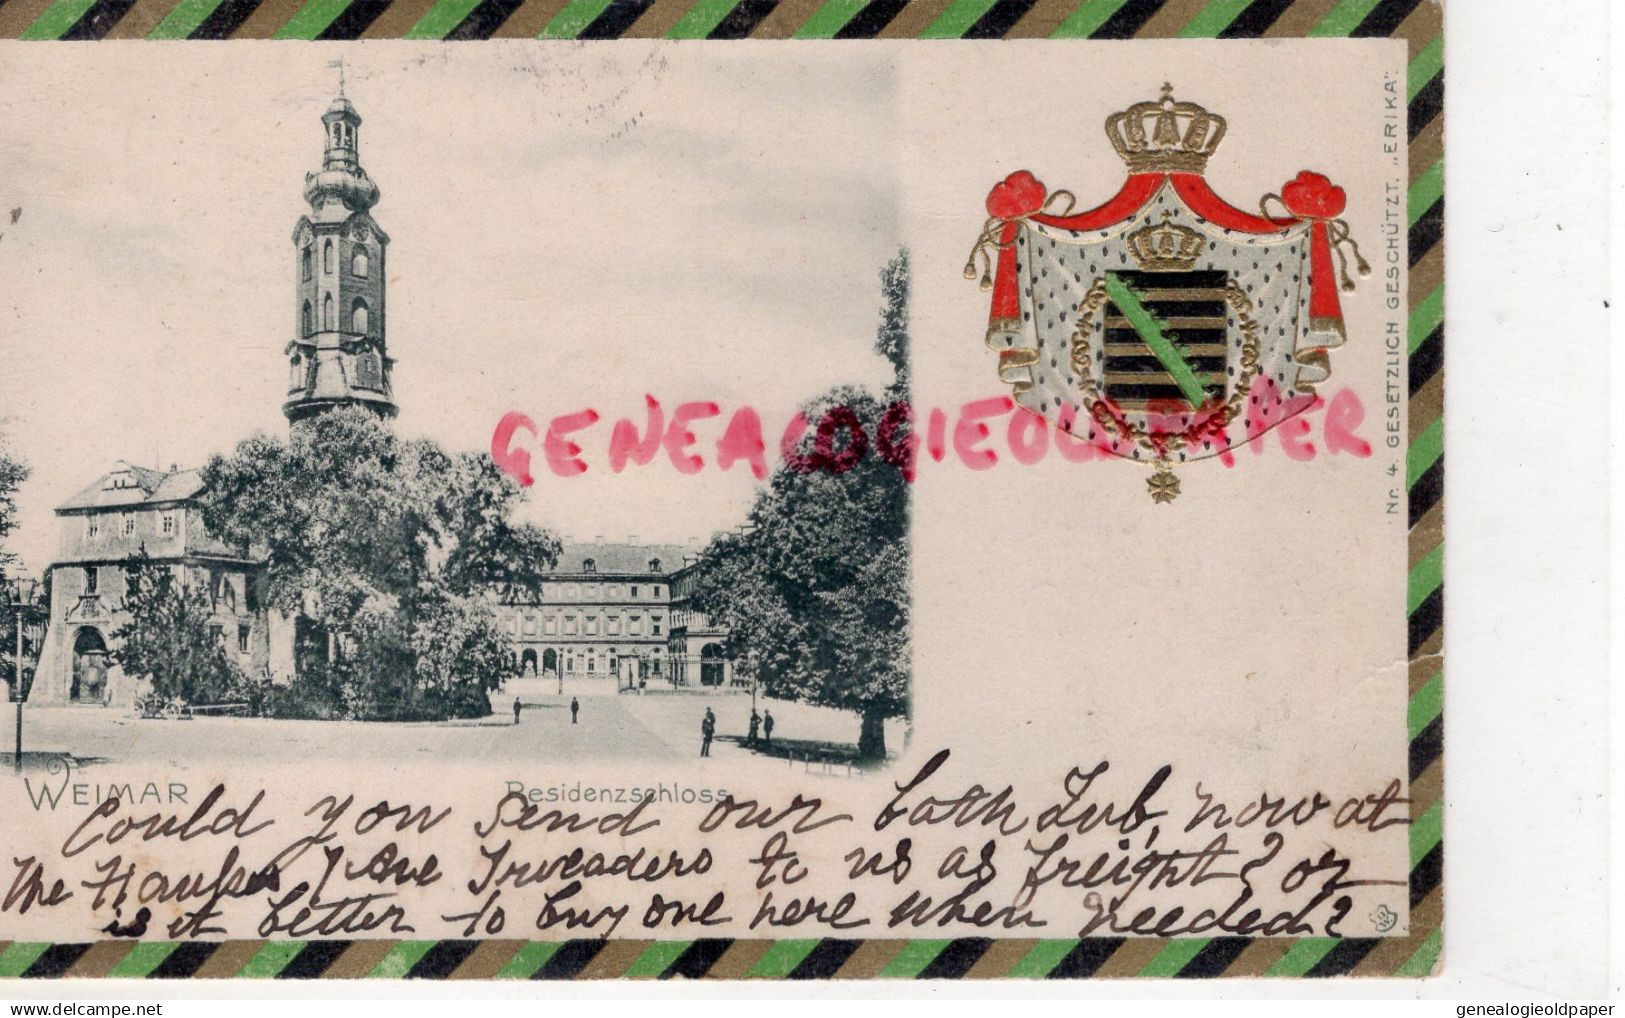 Nr. 4. GESETZLICH GESCHÜTZT. „ERIKA".
GENEALOGIEOLDPAPER
WEIMAR
Residenzschloss
Could you send our bath Tub, now at
the to us as freight? or
is it better to buy one here when needed?
genealogieoldpaper